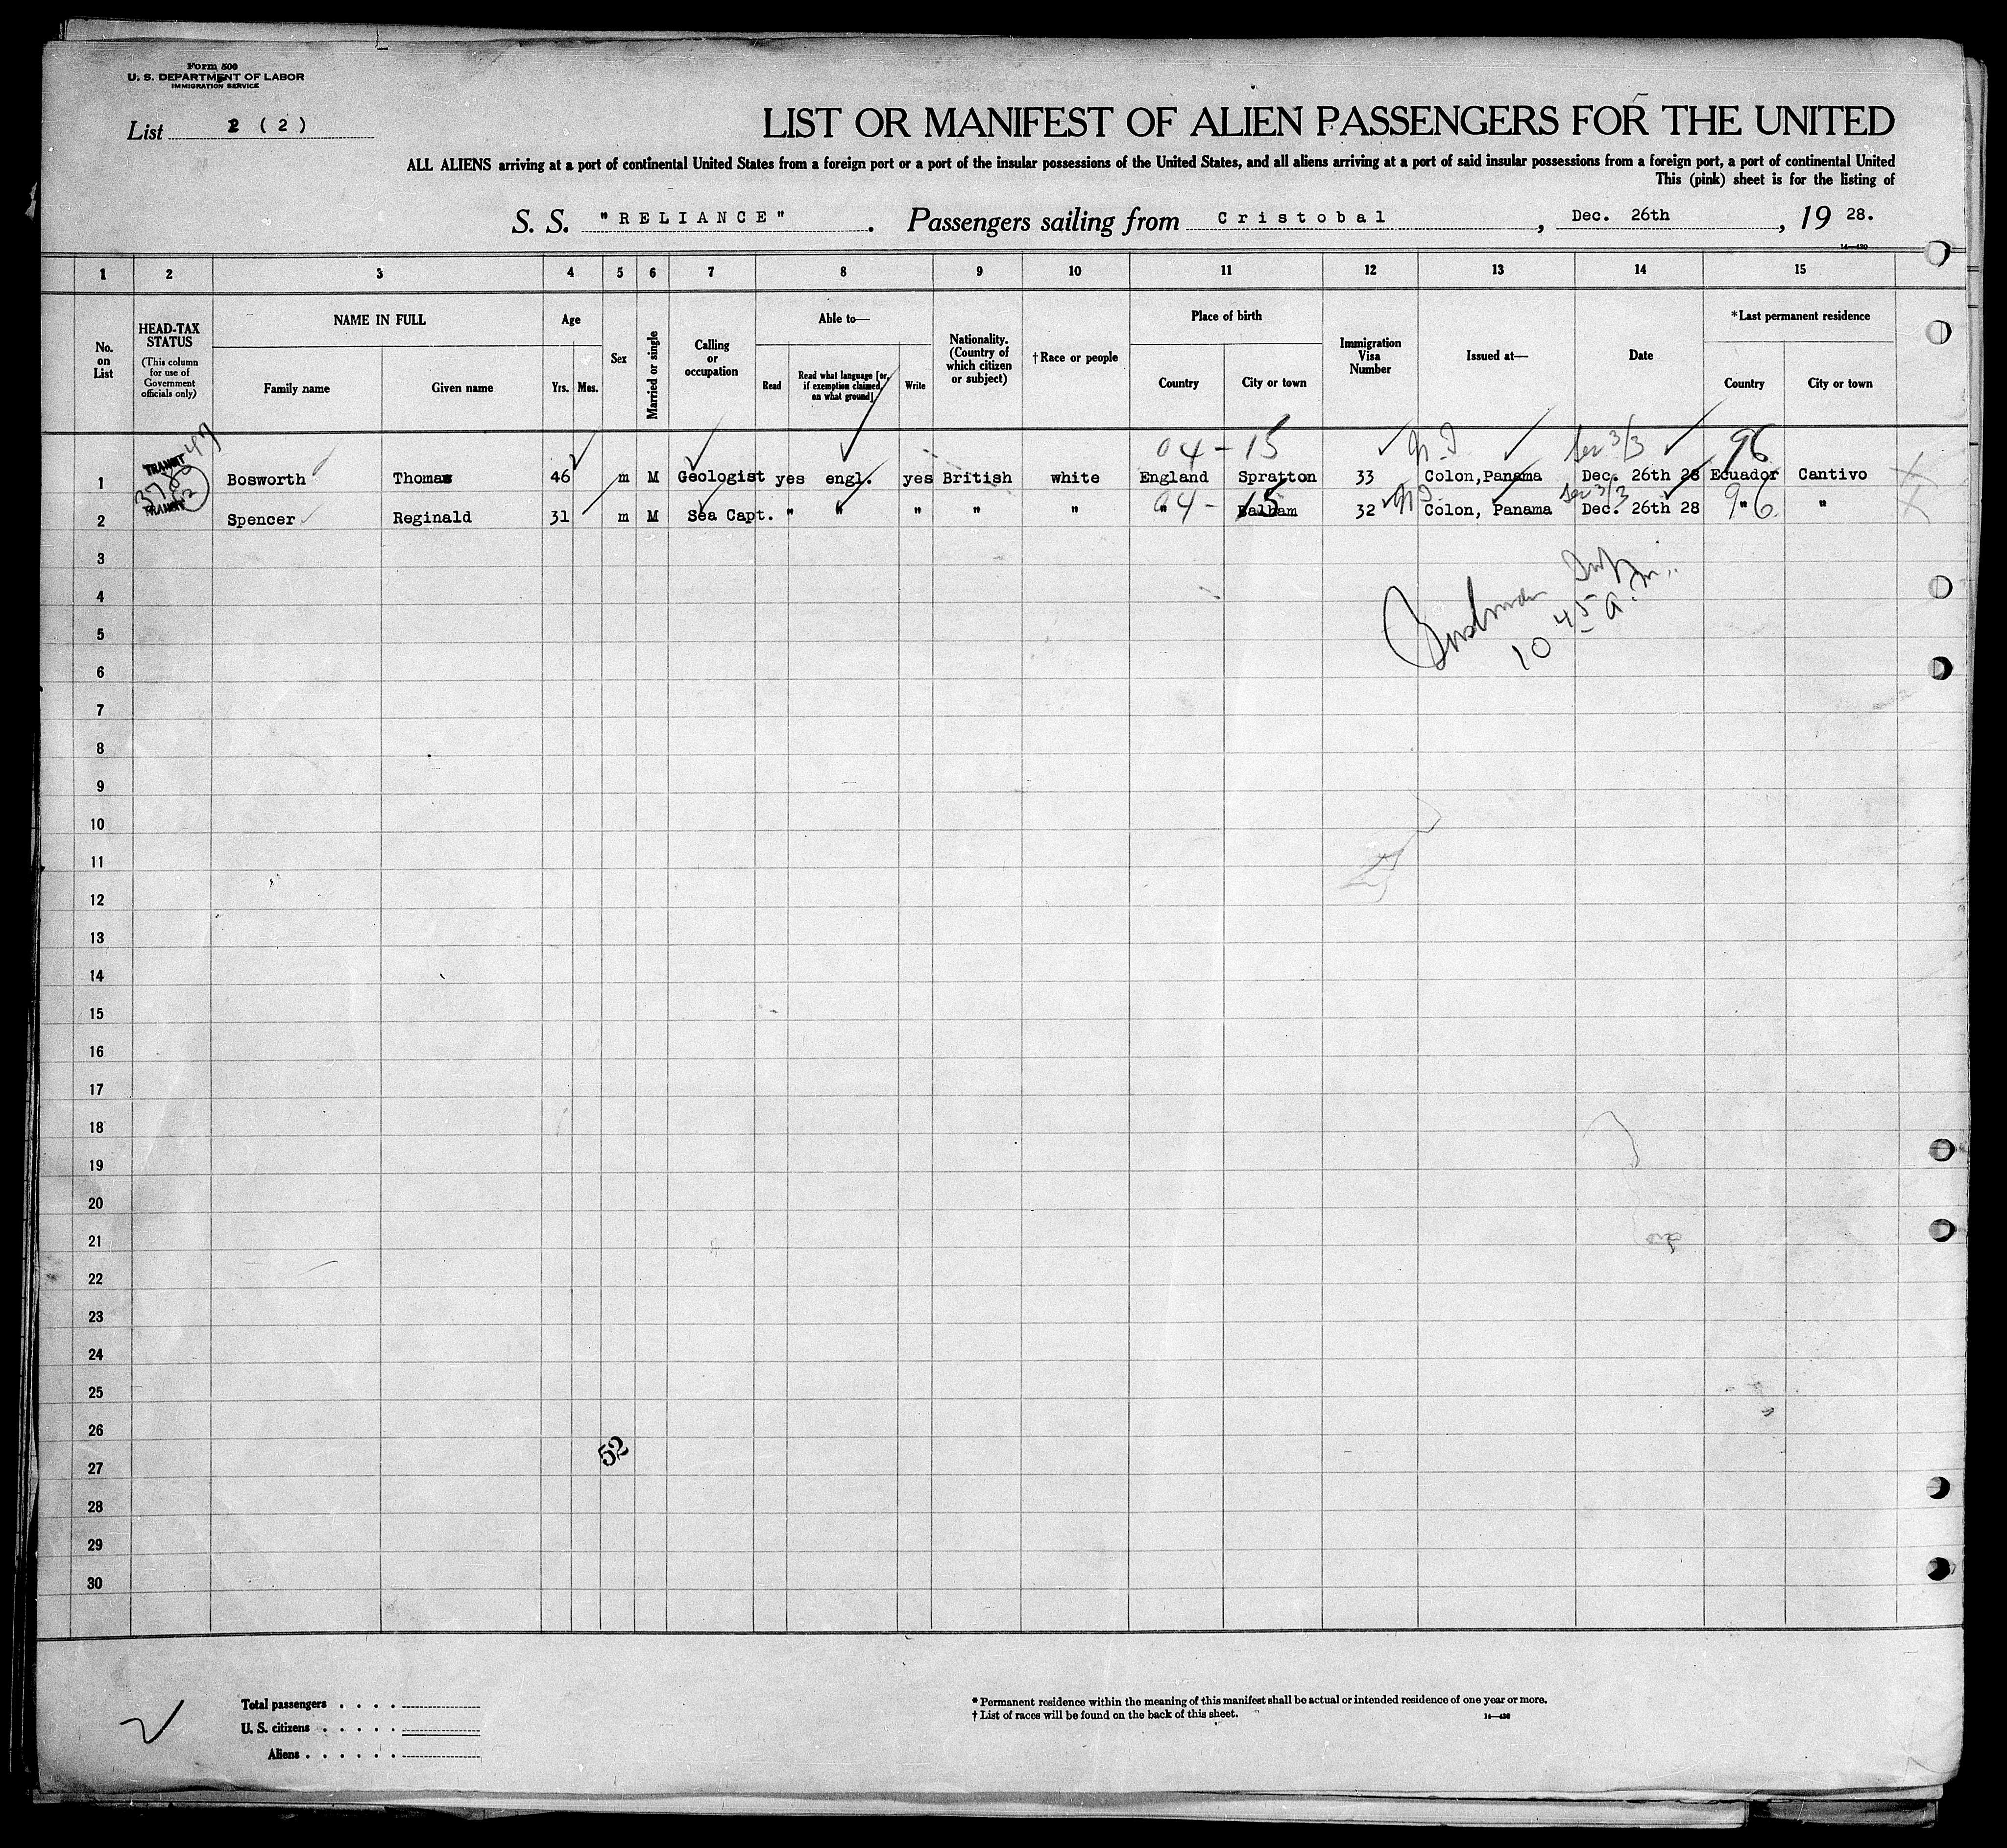 Form 500
U. S. DEPARTMENT OF LABOR
IMMIGRATION SERVICE
List 2 ( 2 )
LIST OR MANIFEST OF ALIEN PASSENGERS FOR THE UNITED
ALL ALIENS arriving at a port of continental United States from a foreign port or a port of the insular possessions of the United States, and all aliens arriving at a port of said insular possessions from a foreign port, a port of continental United
This (pink) sheet is for the listing of
S. S. "RELIANCE" . Passengers sailing from Cristobal , Dec. 26th , 19 28.
14—430
1 2 3 4 5 6 7 8 9 10 11 12 13 14 15
No. on List
HEAD-TAX STATUS
(This column for use of Government officials only)
NAME IN FULL
Family name Given name
Age
Yrs. Mos.
Sex
Married or single
Calling or occupation
Able to—
Read
Read what language [or, if exemption claimed, on what ground]
Write
Nationality. (Country of which citizen or subject)
†Race or people
Place of birth
Country City or town
Immigration Visa Number
Issued at—
Date
*Last permanent residence
Country City or town
04-15 96
TRANSIT
1 Bosworth Thomas 46 m M Geologist yes engl. yes British white England Spratton 33 Colon,Panama Dec. 26th 28 Ecuador Cantivo
TRANSIT
04- 15 96
2 Spencer Reginald 31 m M Sea Capt. " " " " " " Balham 32 Colon, Panama Dec. 26th 28 " "
3
4
5
10 45 a.m.
6
7
8
9
10
11
12
13
14
15
16
17
18
19
20
21
22
23
24
25
26
52
27
28
29
30
Total passengers . . . .
U. S. citizens . . . . .
Aliens . . . . . .
* Permanent residence within the meaning of this manifest shall be actual or intended residence of one year or more.
† List of races will be found on the back of this sheet.
14—430